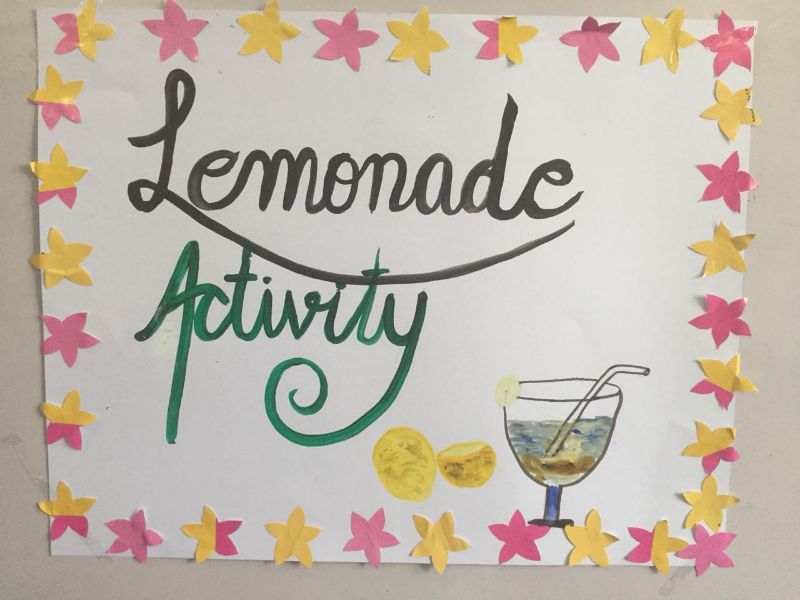 Lemonade
Activity